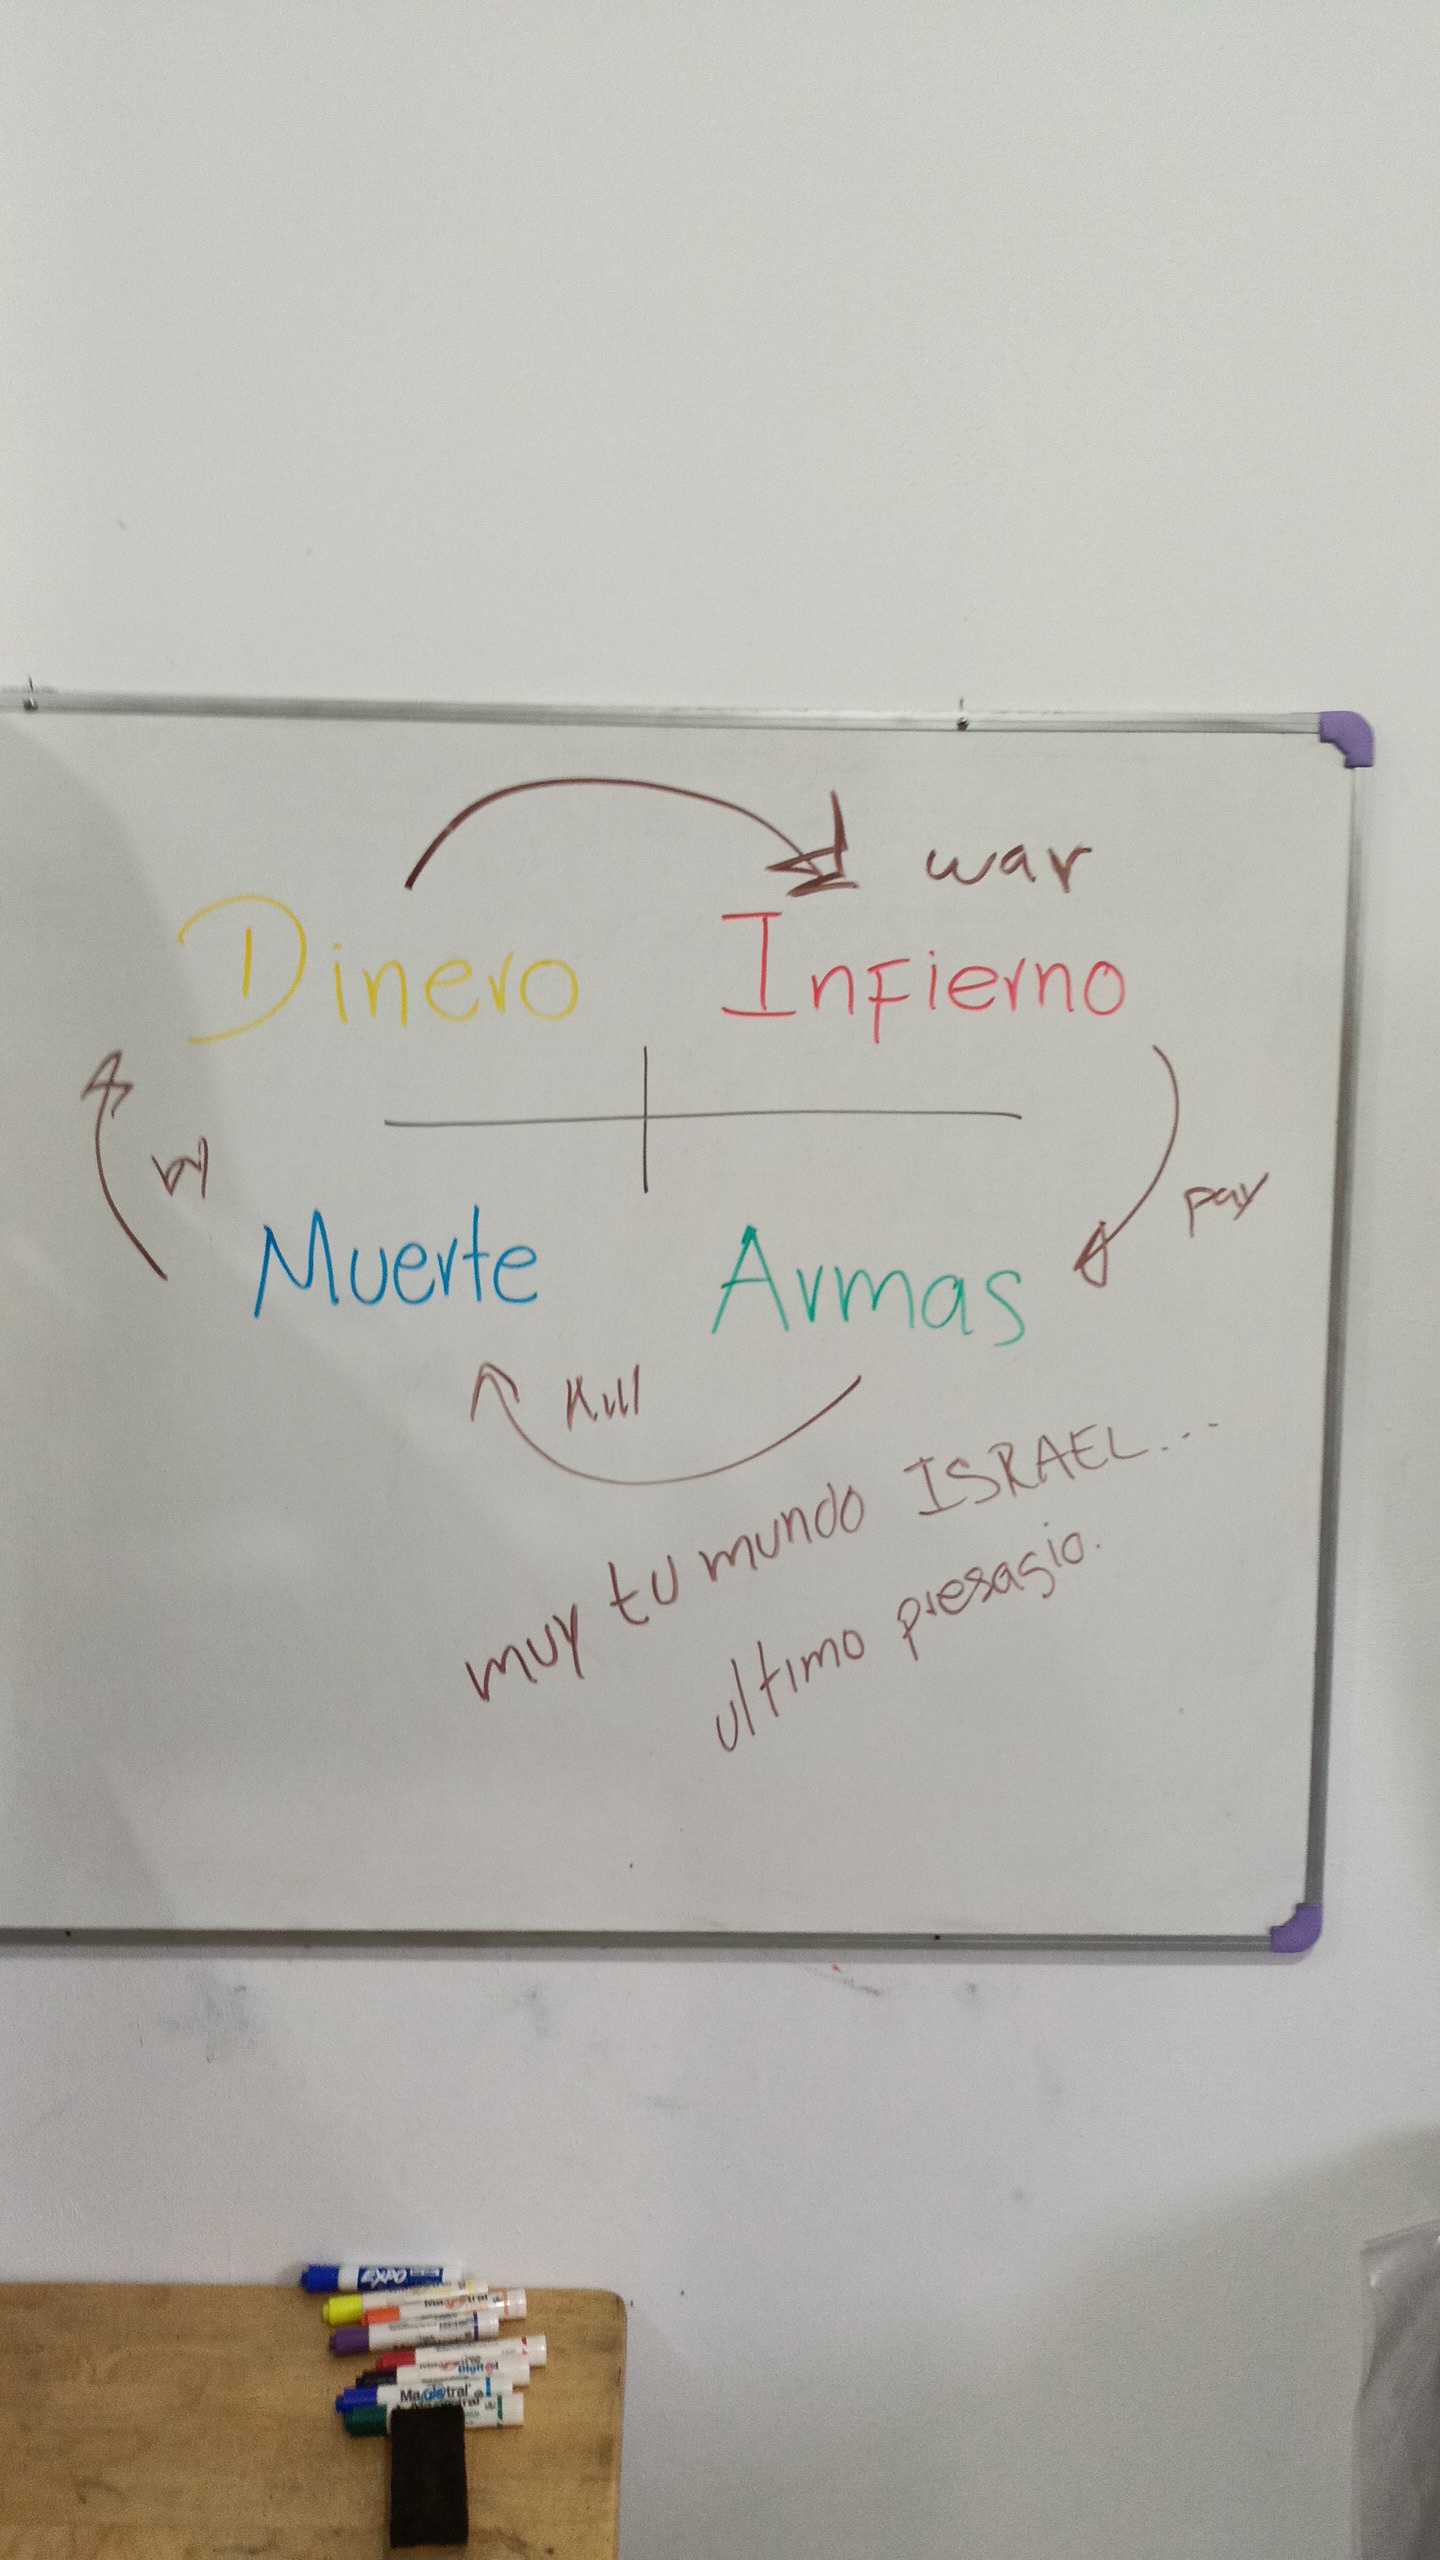 war
Dinero
Infierno
pay
Muerte
Armas
Kill
muy tu mundo ISRAEL...
ultimo presagio.
EXPO
Magistral